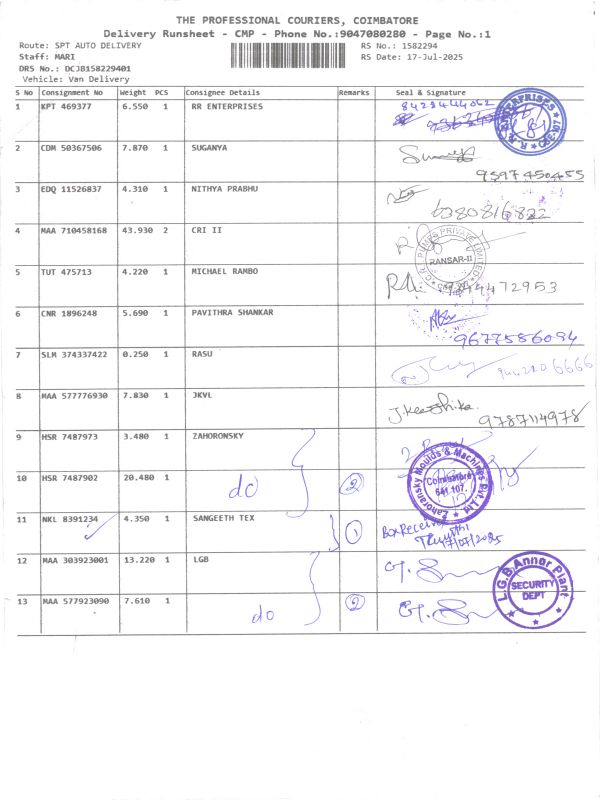 THE PROFESSIONAL COURIERS, COIMBATORE
Delivery Runsheet - CMP - Phone No.:9047080280 - Page No.:1
Route: SPT AUTO DELIVERY
RS No.: 1582294
Staff: MARI
RS Date: 17-Jul-2025
DRS No.: DCJB158229401
Vehicle: Van Delivery
S No Consignment No Weight PCS Consignee Details Remarks Seal & Signature
1 KPT 469377 6.550 1 RR ENTERPRISES
2 CDM 50367506 7.870 1 SUGANYA
9597450455
3 EDQ 11526837 4.310 1 NITHYA PRABHU
6280816822
4 MAA 710458168 43.930 2 CRI II
RANSAR-II
5 TUT 475713 4.220 1 MICHAEL RAMBO
6 CNR 1896248 5.690 1 PAVITHRA SHANKAR
9677586094
7 SLM 374337422 0.250 1 RASU
8 MAA 577776930 7.830 1 JKVL
9787114978
9 HSR 7487973 3.480 1 ZAHORONSKY
Zahoransky Moulds & Machines Pvt. Ltd
Coimbatore
641 107.
10 HSR 7487902 20.480 1 do 2
11 NKL 8391234 4.350 1 SANGEETH TEX 1 Box Received
17/07/2025
12 MAA 303923001 13.220 1 LGB
L.G.B Annor Plant
SECURITY
DEPT
13 MAA 577923090 7.610 1 do 2